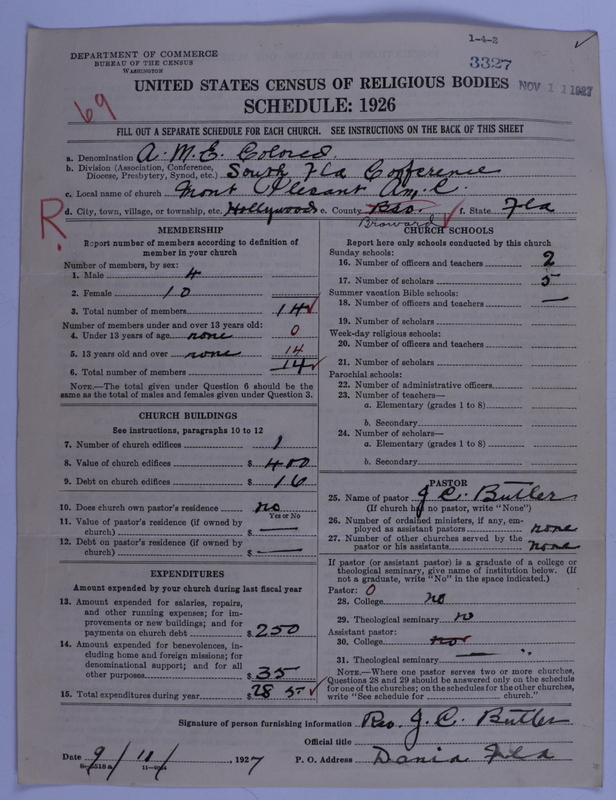 1-4-2
DEPARTMENT OF COMMERCE
BUREAU OF THE CENSUS
WASHINGTON
3327
NOV 11 1927
UNITED STATES CENSUS OF RELIGIOUS BODIES
SCHEDULE: 1926
69
FILL OUT A SEPARATE SCHEDULE FOR EACH CHURCH. SEE INSTRUCTIONS ON THE BACK OF THIS SHEET
a. Denomination A. M. E. Colored
b. Division (Association, Conference, Diocese, Presbytery, Synod, etc.) South Fla Conference
c. Local name of church Mont Plesant Am. C.
d. City, town, village, or township, etc. Hollywood e. County Broward f. State Fla
R.
MEMBERSHIP
Report number of members according to definition of
member in your church
Number of members, by sex:
1. Male 4
2. Female 10
3. Total number of members 14
Number of members under and over 13 years old:
4. Under 13 years of age none 0
5. 13 years old and over none 14
6. Total number of members 14
NOTE.—The total given under Question 6 should be the
same as the total of males and females given under Question 3.
CHURCH BUILDINGS
See instructions, paragraphs 10 to 12
7. Number of church edifices 1
8. Value of church edifices $ 400
9. Debt on church edifices $ 16
10. Does church own pastor's residence no
Yes or No
11. Value of pastor's residence (if owned by
church) $ —
12. Debt on pastor's residence (if owned by
church) $ —
EXPENDITURES
Amount expended by your church during last fiscal year
13. Amount expended for salaries, repairs,
and other running expenses; for im-
provements or new buildings; and for
payments on church debt $ 250
14. Amount expended for benevolences, in-
cluding home and foreign missions; for
denominational support; and for all
other purposes $ 35
15. Total expenditures during year $ 285
CHURCH SCHOOLS
Report here only schools conducted by this church
Sunday schools:
16. Number of officers and teachers 2
17. Number of scholars 5
Summer vacation Bible schools:
18. Number of officers and teachers —
19. Number of scholars
Week-day religious schools:
20. Number of officers and teachers
21. Number of scholars
Parochial schools:
22. Number of administrative officers
23. Number of teachers—
a. Elementary (grades 1 to 8)
b. Secondary
24. Number of scholars—
a. Elementary (grades 1 to 8)
b. Secondary
PASTOR
25. Name of pastor J. C. Butler
(If church has no pastor, write "None")
26. Number of ordained ministers, if any, em-
ployed as assistant pastors none
27. Number of other churches served by the
pastor or his assistants none
If pastor (or assistant pastor) is a graduate of a college or
theological seminary, give name of institution below. (If
not a graduate, write "No" in the space indicated.)
Pastor: 0
28. College no
29. Theological seminary no
Assistant pastor:
30. College no
31. Theological seminary — "
NOTE.—Where one pastor serves two or more churches,
Questions 28 and 29 should be answered only on the schedule
for one of the churches; on the schedules for the other churches,
write "See schedule for church."
Signature of person furnishing information J. C. Butler
Official title
Date 9/10/, 1927 P. O. Address Dania Fla